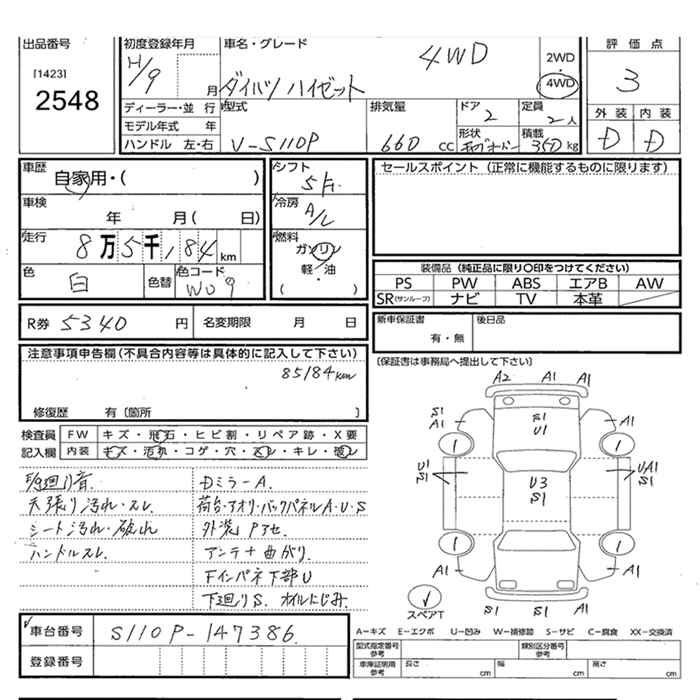 出品番号 初度登録年月 車名・グレード 4WD 2WD 評価点
[1423] H/9 月 ダイハツ ハイゼット ・ 4WD 3
2548 ディーラー・並行 型式 排気量 ドア 2 定員 2人 外装 内装
モデル年式 年 V-S110P 660 cc 形状 積載 350 kg D D
ハンドル 左・右
車歴 自家用・( ) シフト 5F セールスポイント (正常に機能するものに限ります)
車検 年 月 ( 日) 冷房 A/C
走行 8万5千184 km 燃料 ガソリン
軽・油
( )
色 白 色替 色コード W09
装備品 (純正品に限り○印をつけてください)
PS PW ABS エアB AW
SR(サンルーフ) ナビ TV 本革
R券 5340 円 名変期限 月 日 新車保証書 有・無 後日品
注意事項申告欄(不具合内容等は具体的に記入して下さい) [保証書は事務局へ提出して下さい]
85184km
修復歴 有 [箇所 ]
検査員 FW キズ・飛石・ヒビ割・リペア跡・X要
記入欄 内装 キズ・汚れ・コゲ・穴・スレ・キレ・破レ
A2 A1 A1
S1 A1 S1 U1 A1
1 1
U1 S1 U3 S1 UA1 S1
1 1
A1 A1
S1 S1 A1
スペアT
下廻り音 Dミラー A.
天張り汚れ・スレ 荷台・アオリ・バックパネル A・U・S
シート汚れ・破れ 外洗 Pアセ
ハンドルスレ アンテナ曲がり.
Fインパネ下部U
下廻りS. オイルにじみ.
車台番号 S110P-147386
登録番号
A-キズ E-エクボ U-凹み W-補修跡 S-サビ C-腐食 XX-交換済
型式指定番号 参考 類別区分番号 参考
車庫証明用 参考 長さ cm 幅 cm 高さ cm